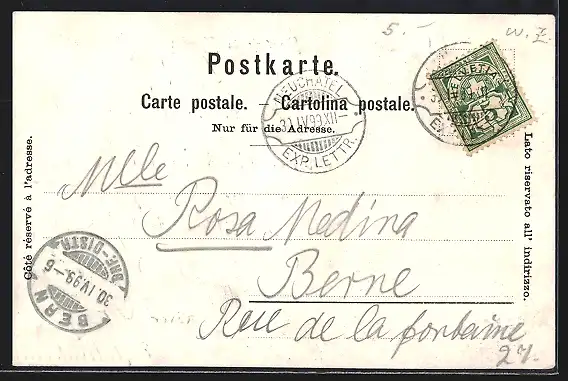 5.-
w. Z
Postkarte.
Carte postale. — Cartolina postale.
Nur für die Adresse.
NEUCHATEL
30 IV 99 XII-
EXP. LETTR.
HELVETIA
Côté réservé à l'adresse.
Lato riservato all' indirizzo.
Mlle
Rosa Medina
Berne
Rue de la fontaine
27.
BERN
30. IV. 99.-6
BRF-DISTR.